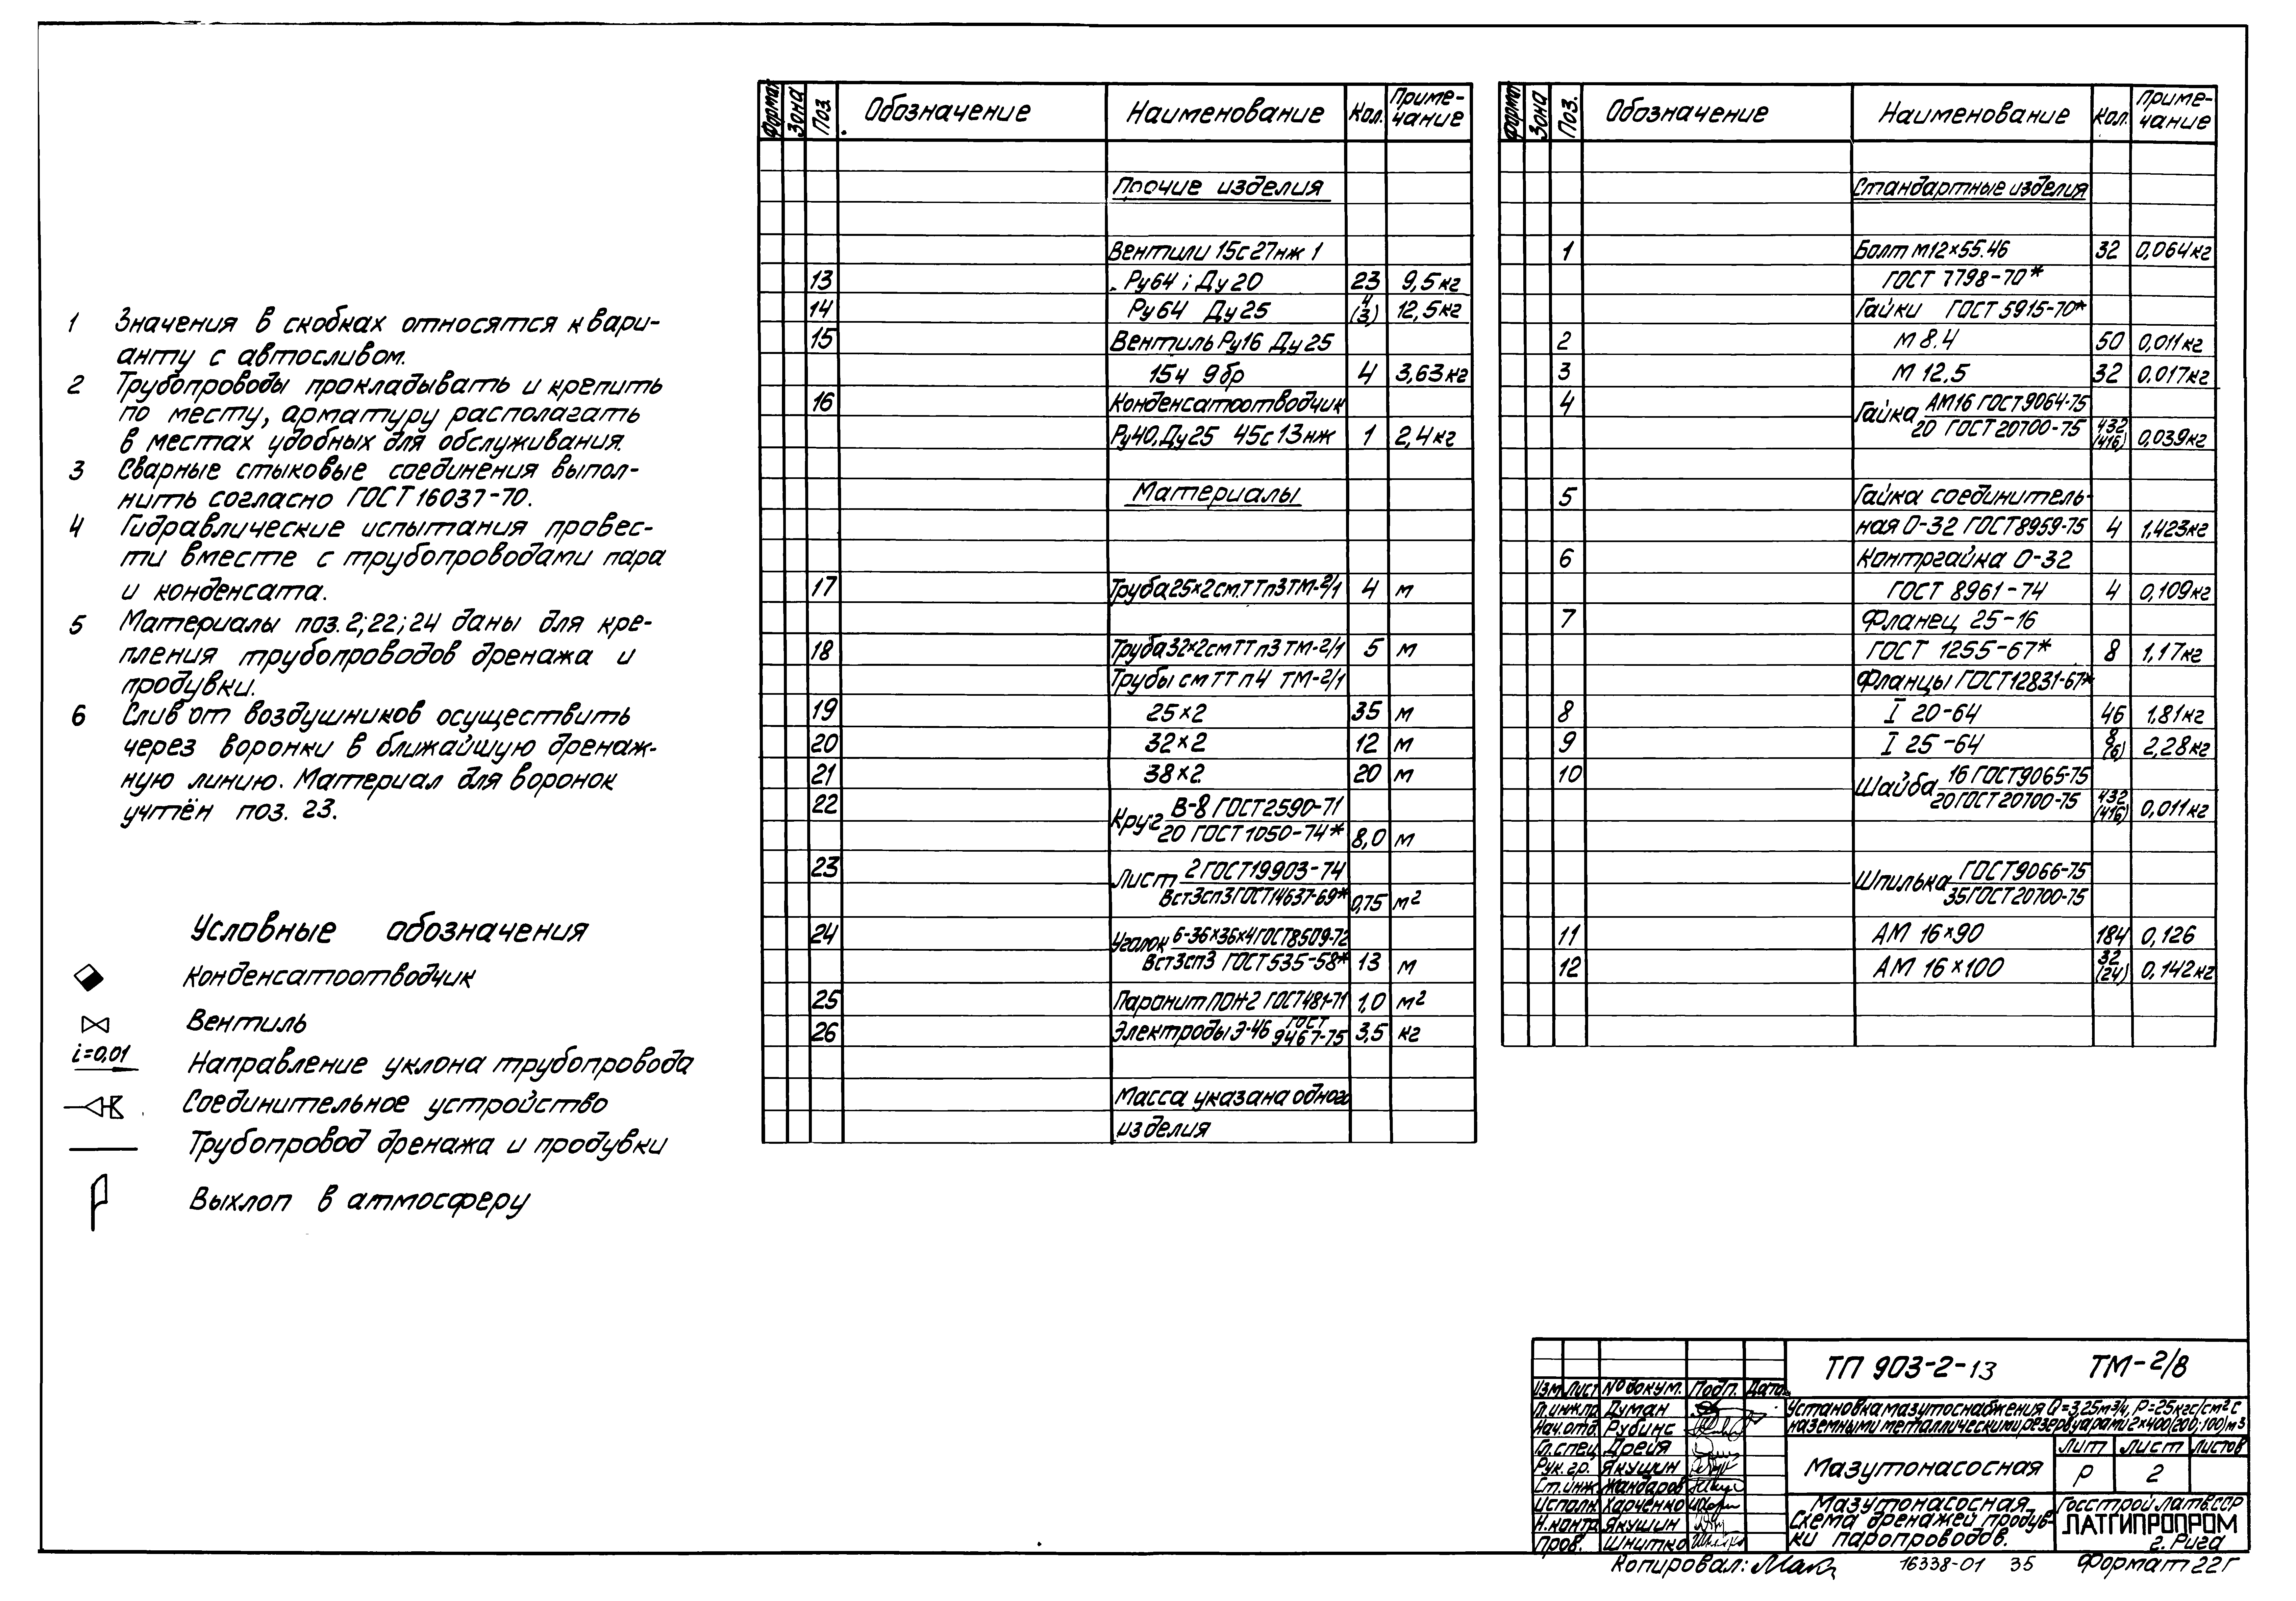 1 Значения в скобках относятся к вари-
анту с автосливом.
2 Трубопроводы прокладывать и крепить
по месту, арматуру располагать
в местах удобных для обслуживания.
3 Сварные стыковые соединения выпол-
нить согласно ГОСТ 16037-70.
4 Гидравлические испытания провес-
ти вместе с трубопроводами пара
и конденсата.
5 Материалы поз. 2; 22; 24 даны для кре-
пления трубопроводов дренажа и
продувки.
6 Слив от воздушников осуществить
через воронки в ближайшую дренаж-
ную линию. Материал для воронок
учтён поз. 23.
Условные обозначения
Конденсатоотводчик
Вентиль
i=0,01 Направление уклона трубопровода
Соединительное устройство
Трубопровод дренажа и продувки
Выхлоп в атмосферу
Формат Зона Поз. Обозначение Наименование Кол. Приме-
чание
Прочие изделия
Вентили 15с27нж 1
13 Ру64 ; Ду 20 23 9,5 кг
14 Ру64 Ду 25 4 (3) 12,5 кг
15 Вентиль Ру16 Ду 25
15ч 9бр 4 3,63 кг
16 Конденсатоотводчик
Ру40, Ду25 45с13нж 1 2,4 кг
Материалы
17 Труба 25×2 см. ТТ п3 ТМ-2/1 4 м
18 Труба 32×2 см ТТ п3 ТМ-2/1 5 м
Трубы см ТТ п4 ТМ-2/1
19 25×2 35 м
20 32×2 12 м
21 38×2 20 м
22 Круг В-8 ГОСТ 2590-71
20 ГОСТ 1050-74* 8,0 м
23 Лист 2 ГОСТ 19903-74
Вст3сп3 ГОСТ 14637-69* 0,75 м²
24 Уголок Б-36×36×4 ГОСТ 8509-72
Вст3сп3 ГОСТ 535-58* 13 м
25 Паронит ПОН-2 ГОСТ 481-71 1,0 м²
26 Электроды Э-46 ГОСТ
9467-75 3,5 кг
Масса указана одного
изделия
Формат Зона Поз. Обозначение Наименование Кол. Приме-
чание
Стандартные изделия
1 Болт М12×55.46 32 0,064 кг
ГОСТ 7798-70*
Гайки ГОСТ 5915-70*
2 М 8.4 50 0,011 кг
3 М 12.5 32 0,017 кг
4 Гайка АМ16 ГОСТ 9064-75
20 ГОСТ 20700-75 432 (416) 0,039 кг
5 Гайка соединитель-
ная О-32 ГОСТ 8959-75 4 1,423 кг
6 Контргайка О-32
ГОСТ 8961-74 4 0,109 кг
7 Фланец 25-16
ГОСТ 1255-67* 8 1,17 кг
Фланцы ГОСТ 12831-67*
8 I 20-64 46 1,81 кг
9 I 25-64 8 (6) 2,28 кг
10 Шайба 16 ГОСТ 9065-75
20 ГОСТ 20700-75 432 (416) 0,011 кг
Шпилька ГОСТ 9066-75
35 ГОСТ 20700-75
11 АМ 16×90 184 0,126
12 АМ 16×100 32 (24) 0,142 кг
ТП 903-2-13 ТМ-2/8
Изм Лист № докум. Подп. Дата
Гл. инж. пр Думан
Нач. отд. Рубинс
Гл. спец. Дрейя
Рук. гр. Якушин
Ст. инж. Жандаров
Исполн. Харченко
Н. контр. Якушин
Пров. Шнитко
Установка мазутоснабжения Q=3,25м³/ч, Р=25кгс/см² с
наземными металлическими резервуарами 2×400(200;100)м³
Мазутонасосная
Лит Лист Листов
Р 2
Мазутонасосная
Схема дренажей продув-
ки паропроводов.
Госстрой Латв.ССР
ЛАТГИПРОПРОМ
г. Рига
Копировал: 16338-01 35 Формат 22Г